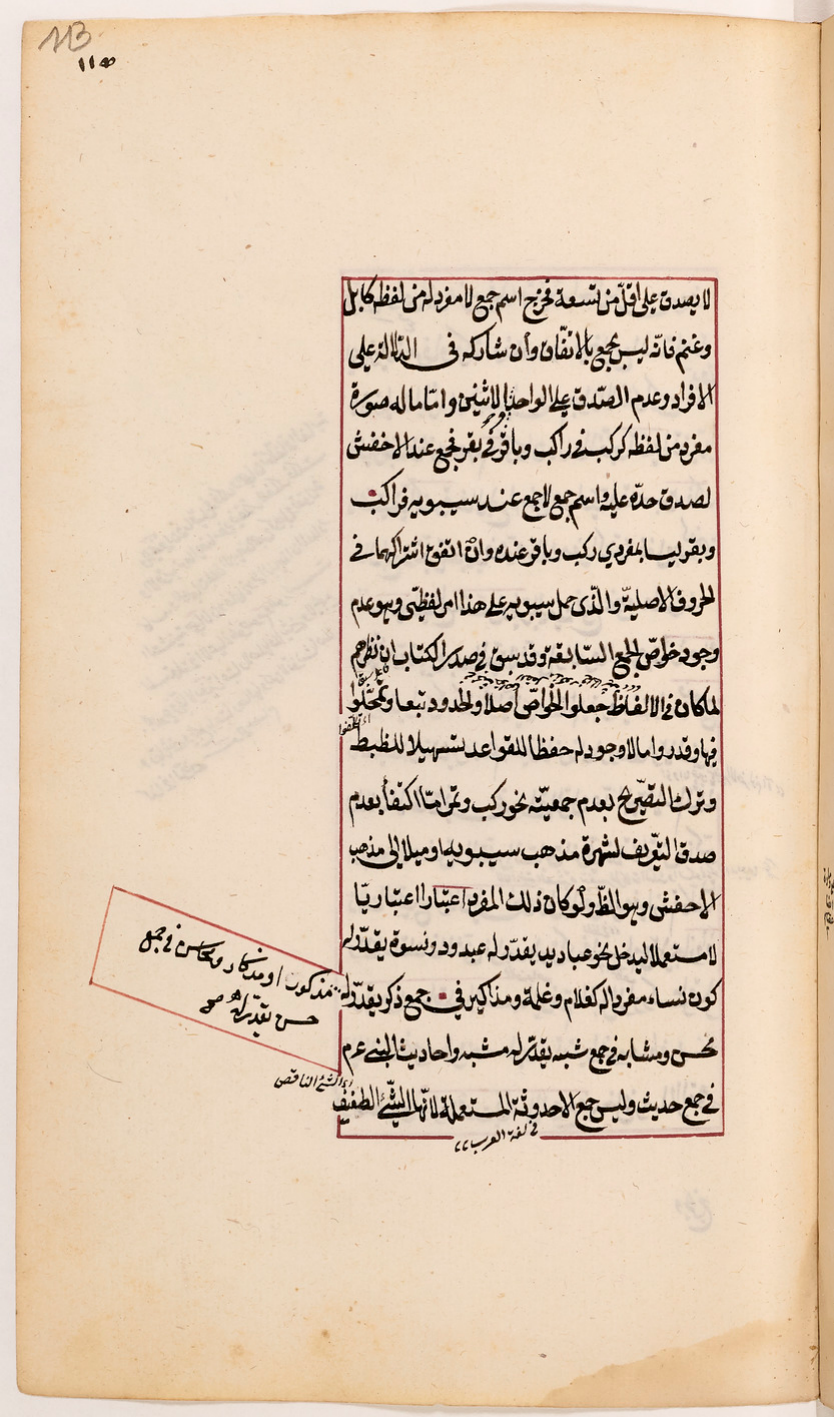 113
١١٣
لا يصدق على اقلّ من تسعة فخرج اسم جمع لا مفرد له من لفظه كابل
وغنم فانّه ليس بجمع بالاتفاق وان شاركه فى الدلالة على
الافراد وعدم الصّدق على الواحد والاثنين وامّا ما له صورة
مفرد من لفظه كركب فى راكب وباقر فى بقر فجمع عند الاخفش
لصدق حدّه عليه واسم جمع لا جمع عند سيبويه فراكب
وبقر ليسا بمفردي ركب وباقر عنده وان اتفق اشتراكهما فى
الحروف الاصليّة والّذى حمل سيبويه على هذا امر لفظىّ وهو عدم
وجود خواصّ الجمع السّابقة وقد سبق فى صدر الكتاب ان نظرهم
لما كان فى الالفاظ جعلوا الخواصّ اصلا والحدود تبعا وتمحّلوا
اى تكلفوا
فيها وقدروا ما لا وجود له حفظا للقواعد تسهيلا للظبط
وترك التصّريح بعدم جمعيّته نحو ركب وتمر امّا اكتفأ بعدم
صدق التعّريف لشهرة مذهب سيبويه او ميلا الى مذهب
الاخفش وهو الظّ ولو كان ذلك المفرد اعتبارا اعتباريّا
لا مستعملا ليدخل نحو عباديد يقدّر له عبدود ونسوة يقدّر له
كون نساء مفرد اله كغلام وغلمة ومذاكير فى جمع ذكر يقدّر له
مذكور او مذكار ومحاسن فى جمع
حسن يقدّر له صح
محسن ومشابه فى جمع شبه يقدّر له مشبه واحاديث النبى عرم
فى جمع حديث وليس جمع الاحدوثة المستعملة لانّها الشّئ الطفيف
اى الشئ الناقص
فى لغة العرب